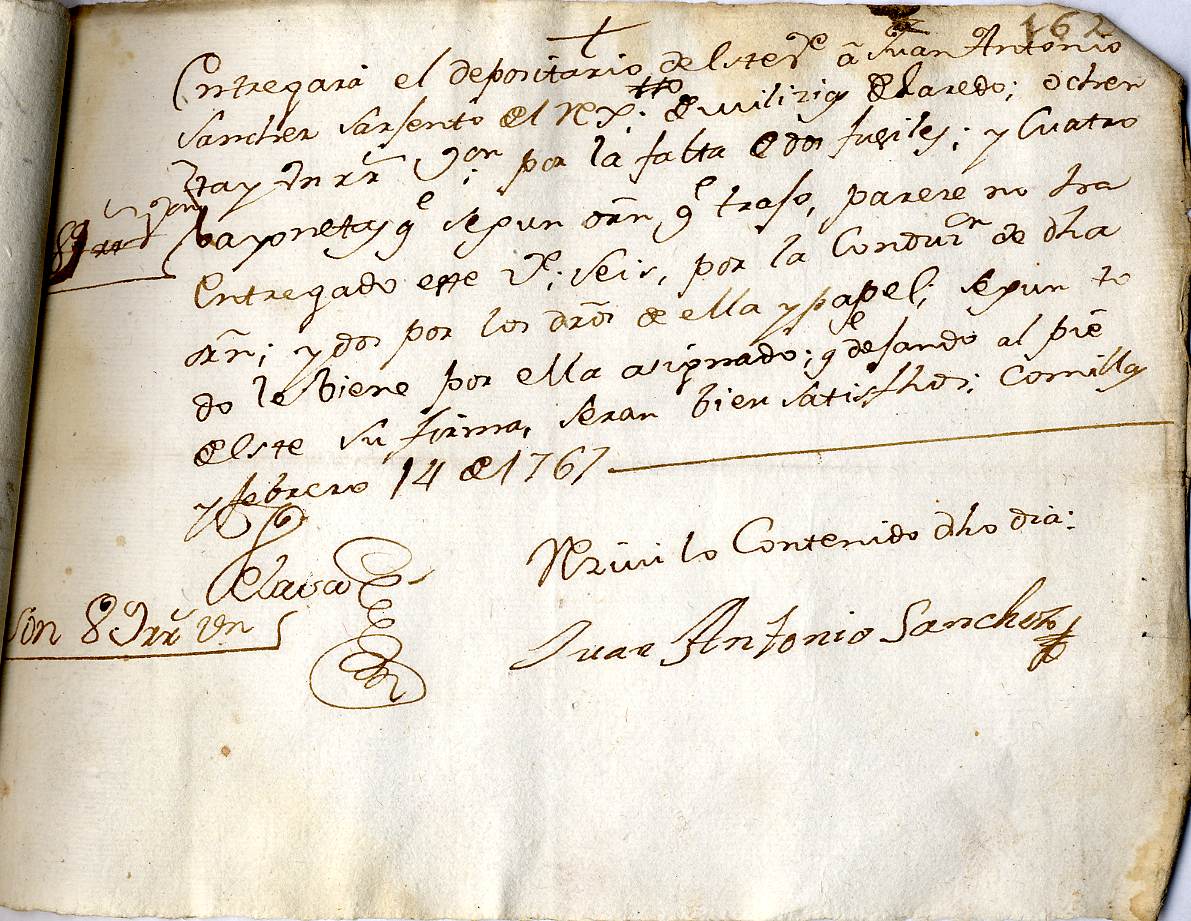 162
Entregará el depositario de este Vᵉ â Juan Antonio
Sanchez Sarsento del Rexᵗᵒ: de milizias de Laredo; ochen
ta y Un rrˢ Von por la falta de dos fusiles; y Cuatro
bayonetas qᵉ segun orñ qᵉ trajo, parese no ha
Entregado este Vᵉ; seis, por la Conduzⁿ de dha
orñ; y dos por los dr̃os de ella y papel; segun to
do le biene por ella asignado; qᵉ dejando al pie
de este su firma, seran bien satisfhos; Comillas
y febrero 14 de 1767
Rezivi lo Contenido dho dia:
Juan Antonio Sanchez
Son 89 rrˢ vn